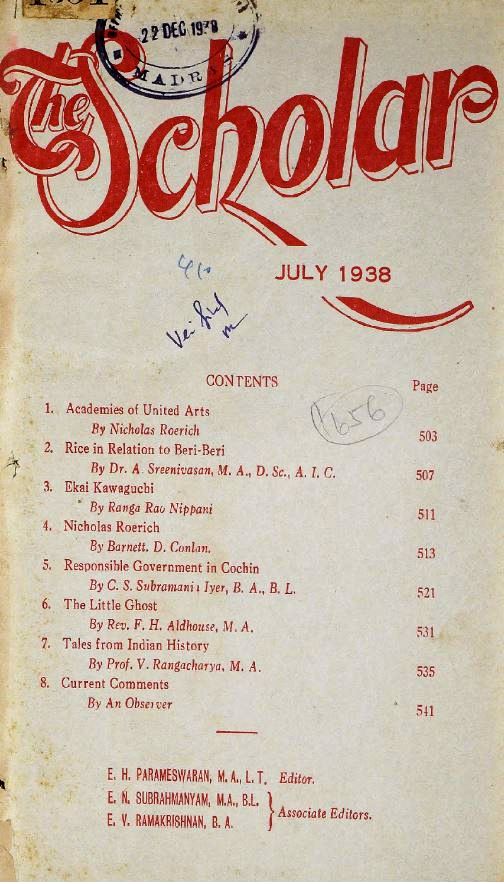 22 DEC 1938
MADRAS
The Scholar
JULY 1938
CONTENTS
Page
1656
1. Academies of United Arts
By Nicholas Roerich 503
2. Rice in Relation to Beri-Beri
By Dr. A. Sreenivasan, M. A., D. Sc., A. I. C. 507
3. Ekai Kawaguchi
By Ranga Rao Nippani 511
4. Nicholas Roerich
By Barnett. D. Conlan. 513
5. Responsible Government in Cochin
By C. S. Subramania Iyer, B. A., B. L. 521
6. The Little Ghost
By Rev. F. H. Aldhouse, M. A. 531
7. Tales from Indian History
By Prof. V. Rangacharya, M. A. 535
8. Current Comments
By An Observer 541
E. H. PARAMESWARAN, M. A., L. T. Editor.
E. N. SUBRAHMANYAM, M.A., B.L.
E. V. RAMAKRISHNAN, B. A.
Associate Editors.